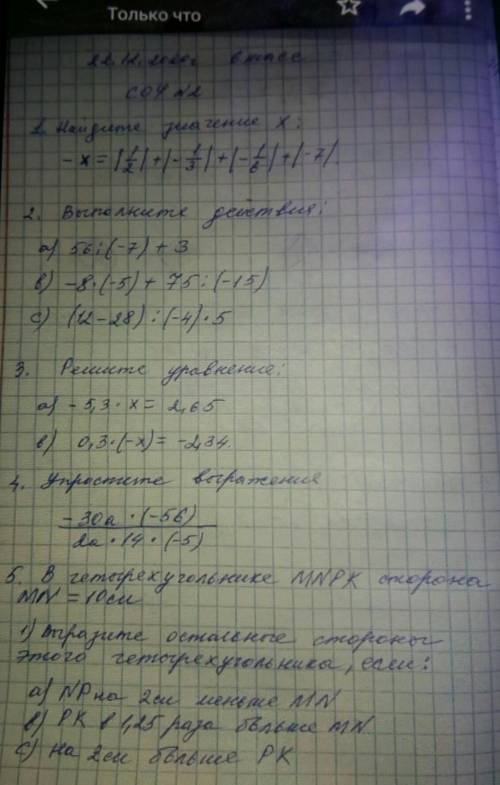 Только что
22.12.2020г 6 класс
СОЧ №2
1. Найдите значение х:
- x = |1/2| + |-1/3| + |-1/6| + |-7|.
2. Выполните действия:
а) 56:(-7) + 3
в) -8·(-5) + 75:(-15)
с) (12-28):(-4)·5
3. Решите уравнение:
а) - 5,3·х = 2,65
в) 0,3·(-х) = -2,34.
4. Упростите выражения
-30а·(-56)
2а·14·(-5)
5. В четырехугольнике MNPK сторона
MN = 10см
1) Выразите остальные стороны
этого четырехугольника, если:
а) NP на 2см меньше MN
в) PK в 1,25 раза больше MN
с) на 2см больше PK